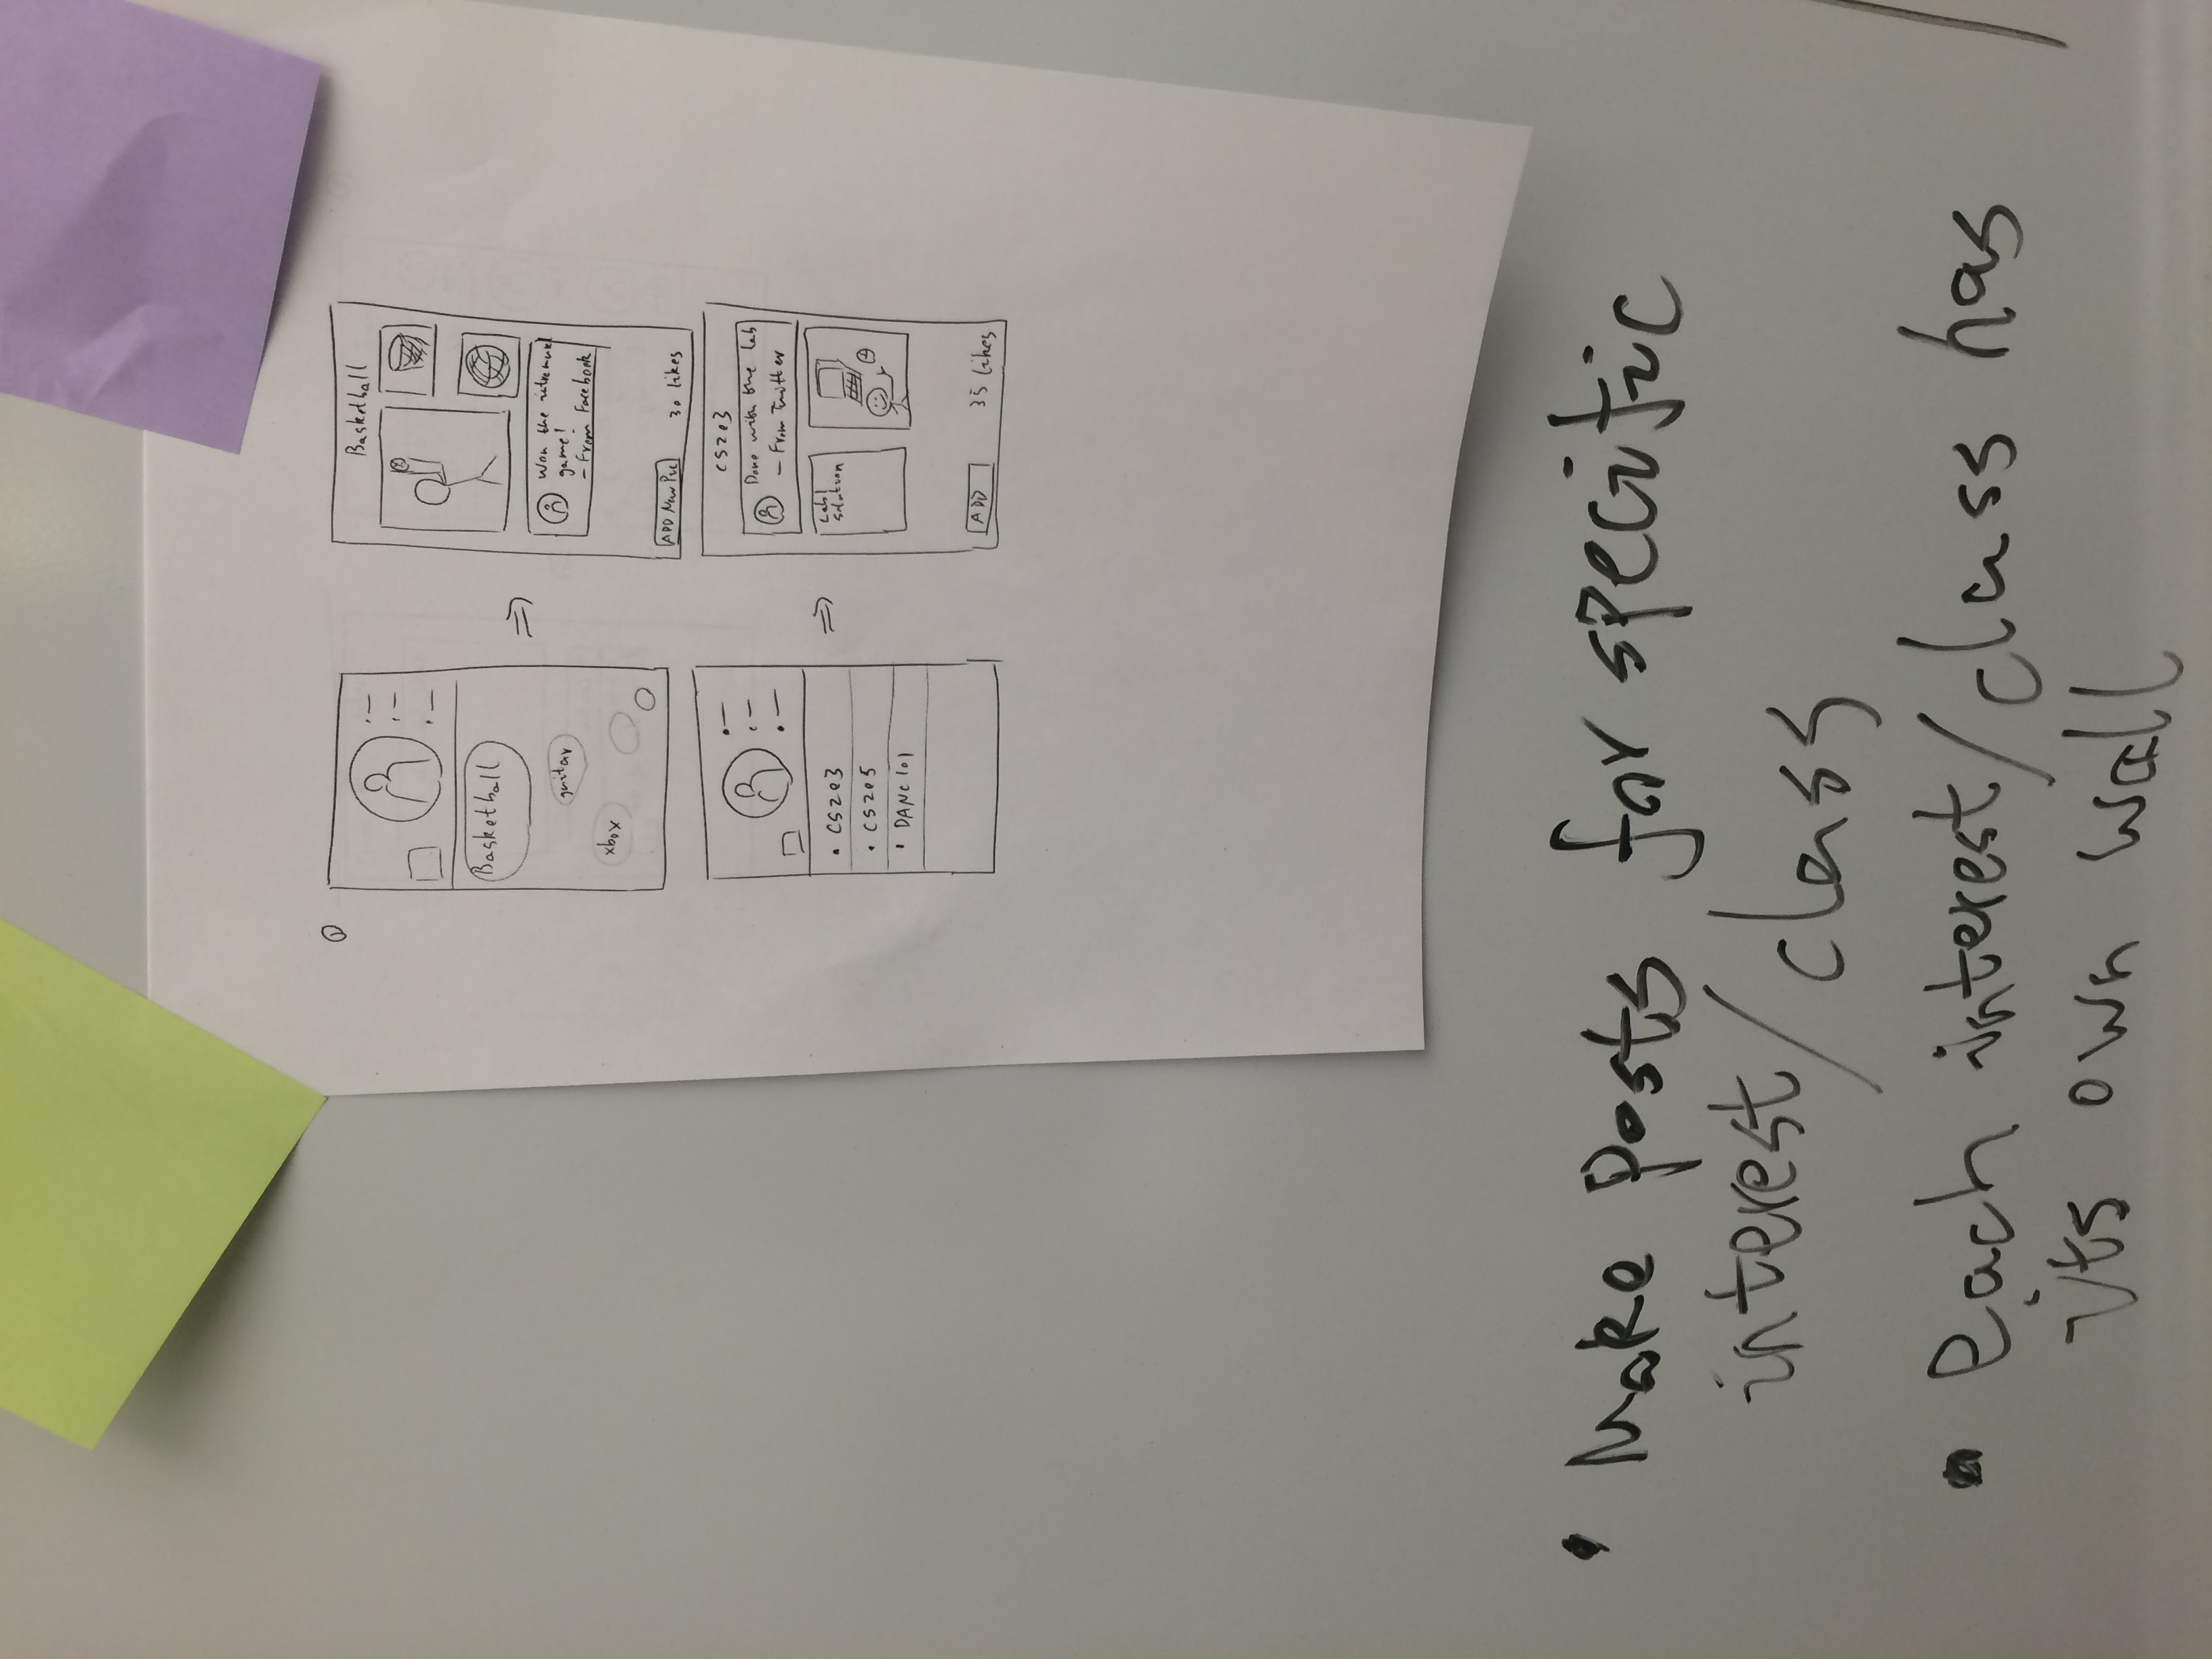 ①
Basketball
guitar
xbox
Basketball
Won the intramural
game!
- From Facebook
ADD New Pic
30 likes
CS2e3
CS2e5
DANC 101
CS2e3
Done with the lab
- From Twitter
Lab1
Solution
ADD
35 likes
• Make posts for specific
interest/class
• each interest/class has
its own wall